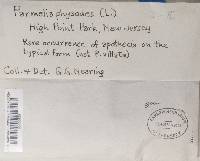 Parmelia physodes (L.)
High Point Park, New Jersey
Rare occurrence of apothecia on the
typical form (not P. vittata)
Coll. & Det. G.G. Nearing